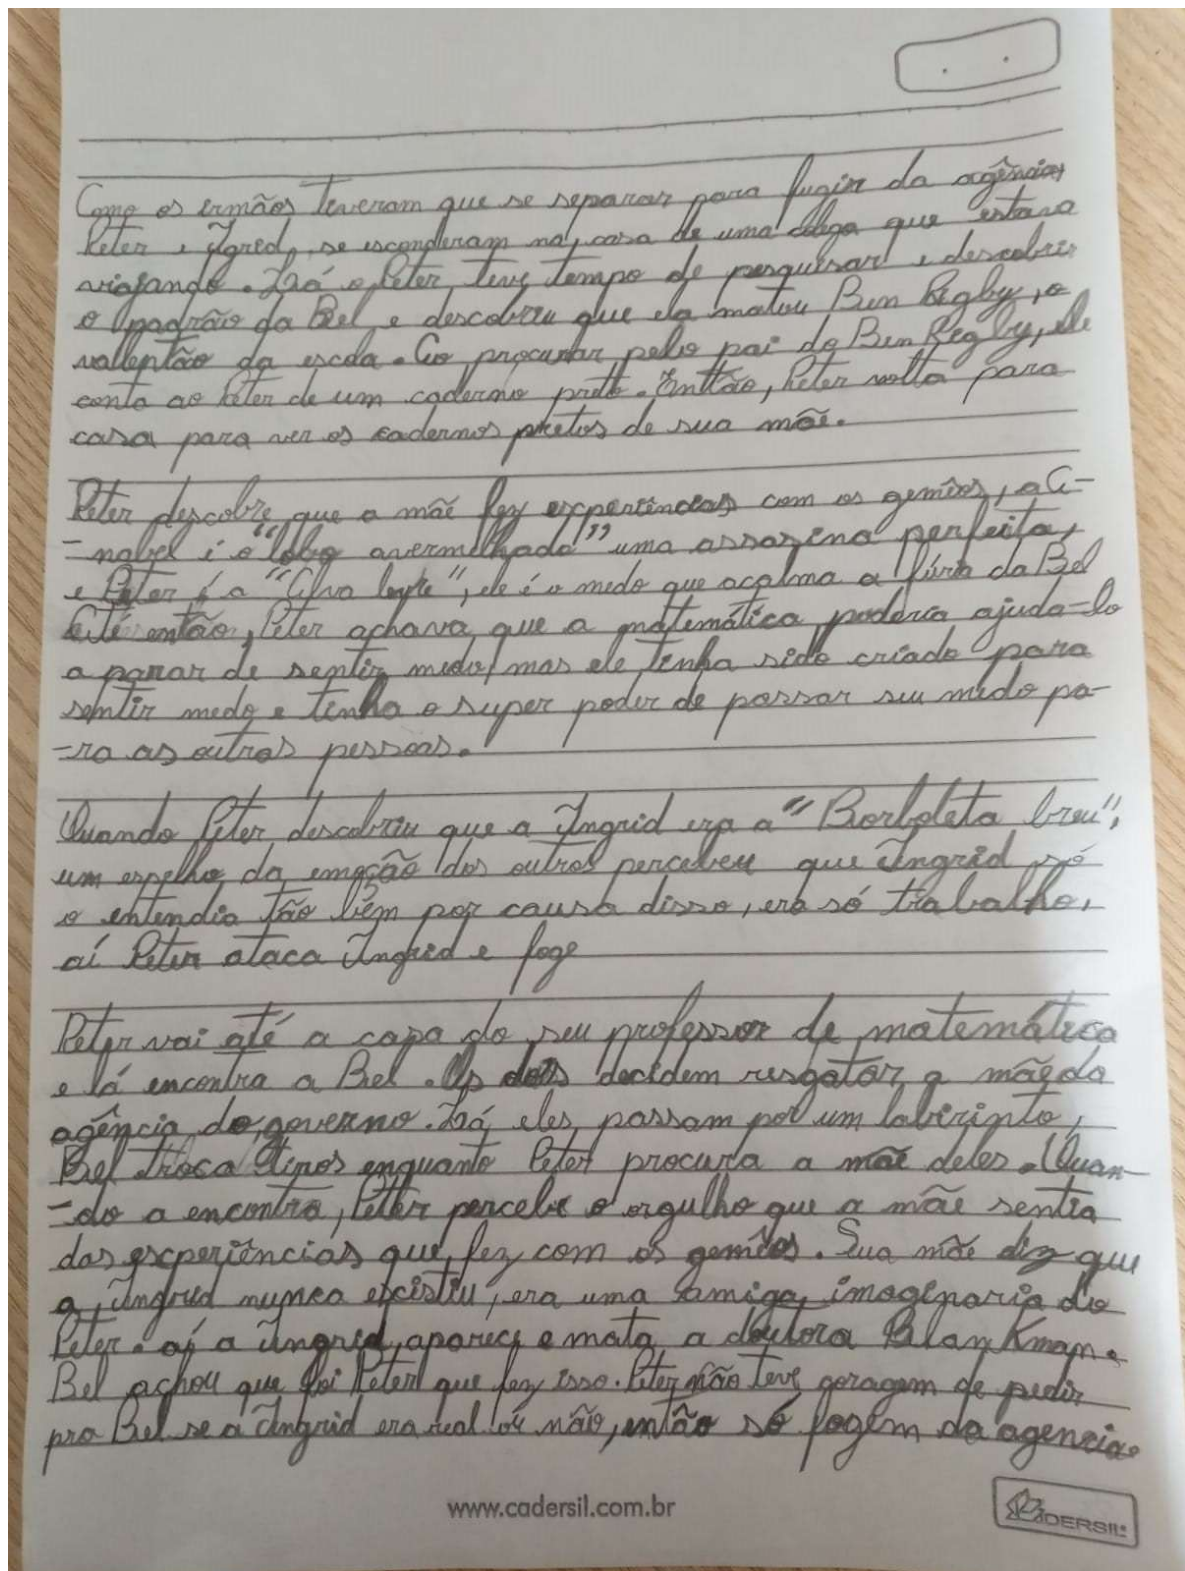 Como os irmãos tiveram que se separar para fugir da agência,
Peter e Igrid, se esconderam na casa de uma colega que estava
viajando. Lá o Peter teve tempo de pesquisar e descobrir
o padrão da Bel e descobriu que ela matou Ben Rigby, o
vallentão da escola. Ao procurar pelo pai do Ben Rigby, ele
conta ao Peter de um caderno preto. Enttão, Peter volta para
casa para ver os cadernos pretos de sua mãe.
Peter descobre que a mãe fez experiências com os gemêos, a A-
-nabel é o "lobo avermelhado" uma assazina perfeita,
e Peter é a "Alva lepre", ele é o medo que acalma a fúria da Bel
Até então, Peter achava que a matemática poderia ajuda-lo
a parar de sentir medo, mas ele tinha sido criado para
sentir medo e tinha o super poder de passar seu medo pa-
-ra as outras pessoas.
Quando Peter descobriu que a Ingrid era a "Borboleta breu",
um espelho da emoção dos outros percebeu que Ingrid só
o entendia tão bem por causa disso, era só trabalho,
aí Peter ataca Ingrid e foge
Peter vai até a casa do seu professor de matemática
e lá encontra a Bel. Os dois decidem resgatar a mãe da
agência do governo. Lá, eles passam por um labirinto,
Bel troca tiros enquanto Peter procura a mãe deles. Quan-
-do a encontra, Peter percebe o orgulho que a mãe sentia
das experiências que fez com os gemêos. Sua mãe diz que
a Ingrid nunca existiu, era uma amiga imaginaria do
Peter. aí a Ingrid aparece e mata a doutora Blankman.
Bel achou que foi Peter que fez isso. Peter não teve coragem de pedir
pra Bel se a Ingrid era real ou não, então só fogem da agencia.
www.cadersil.com.br
CADERSIL